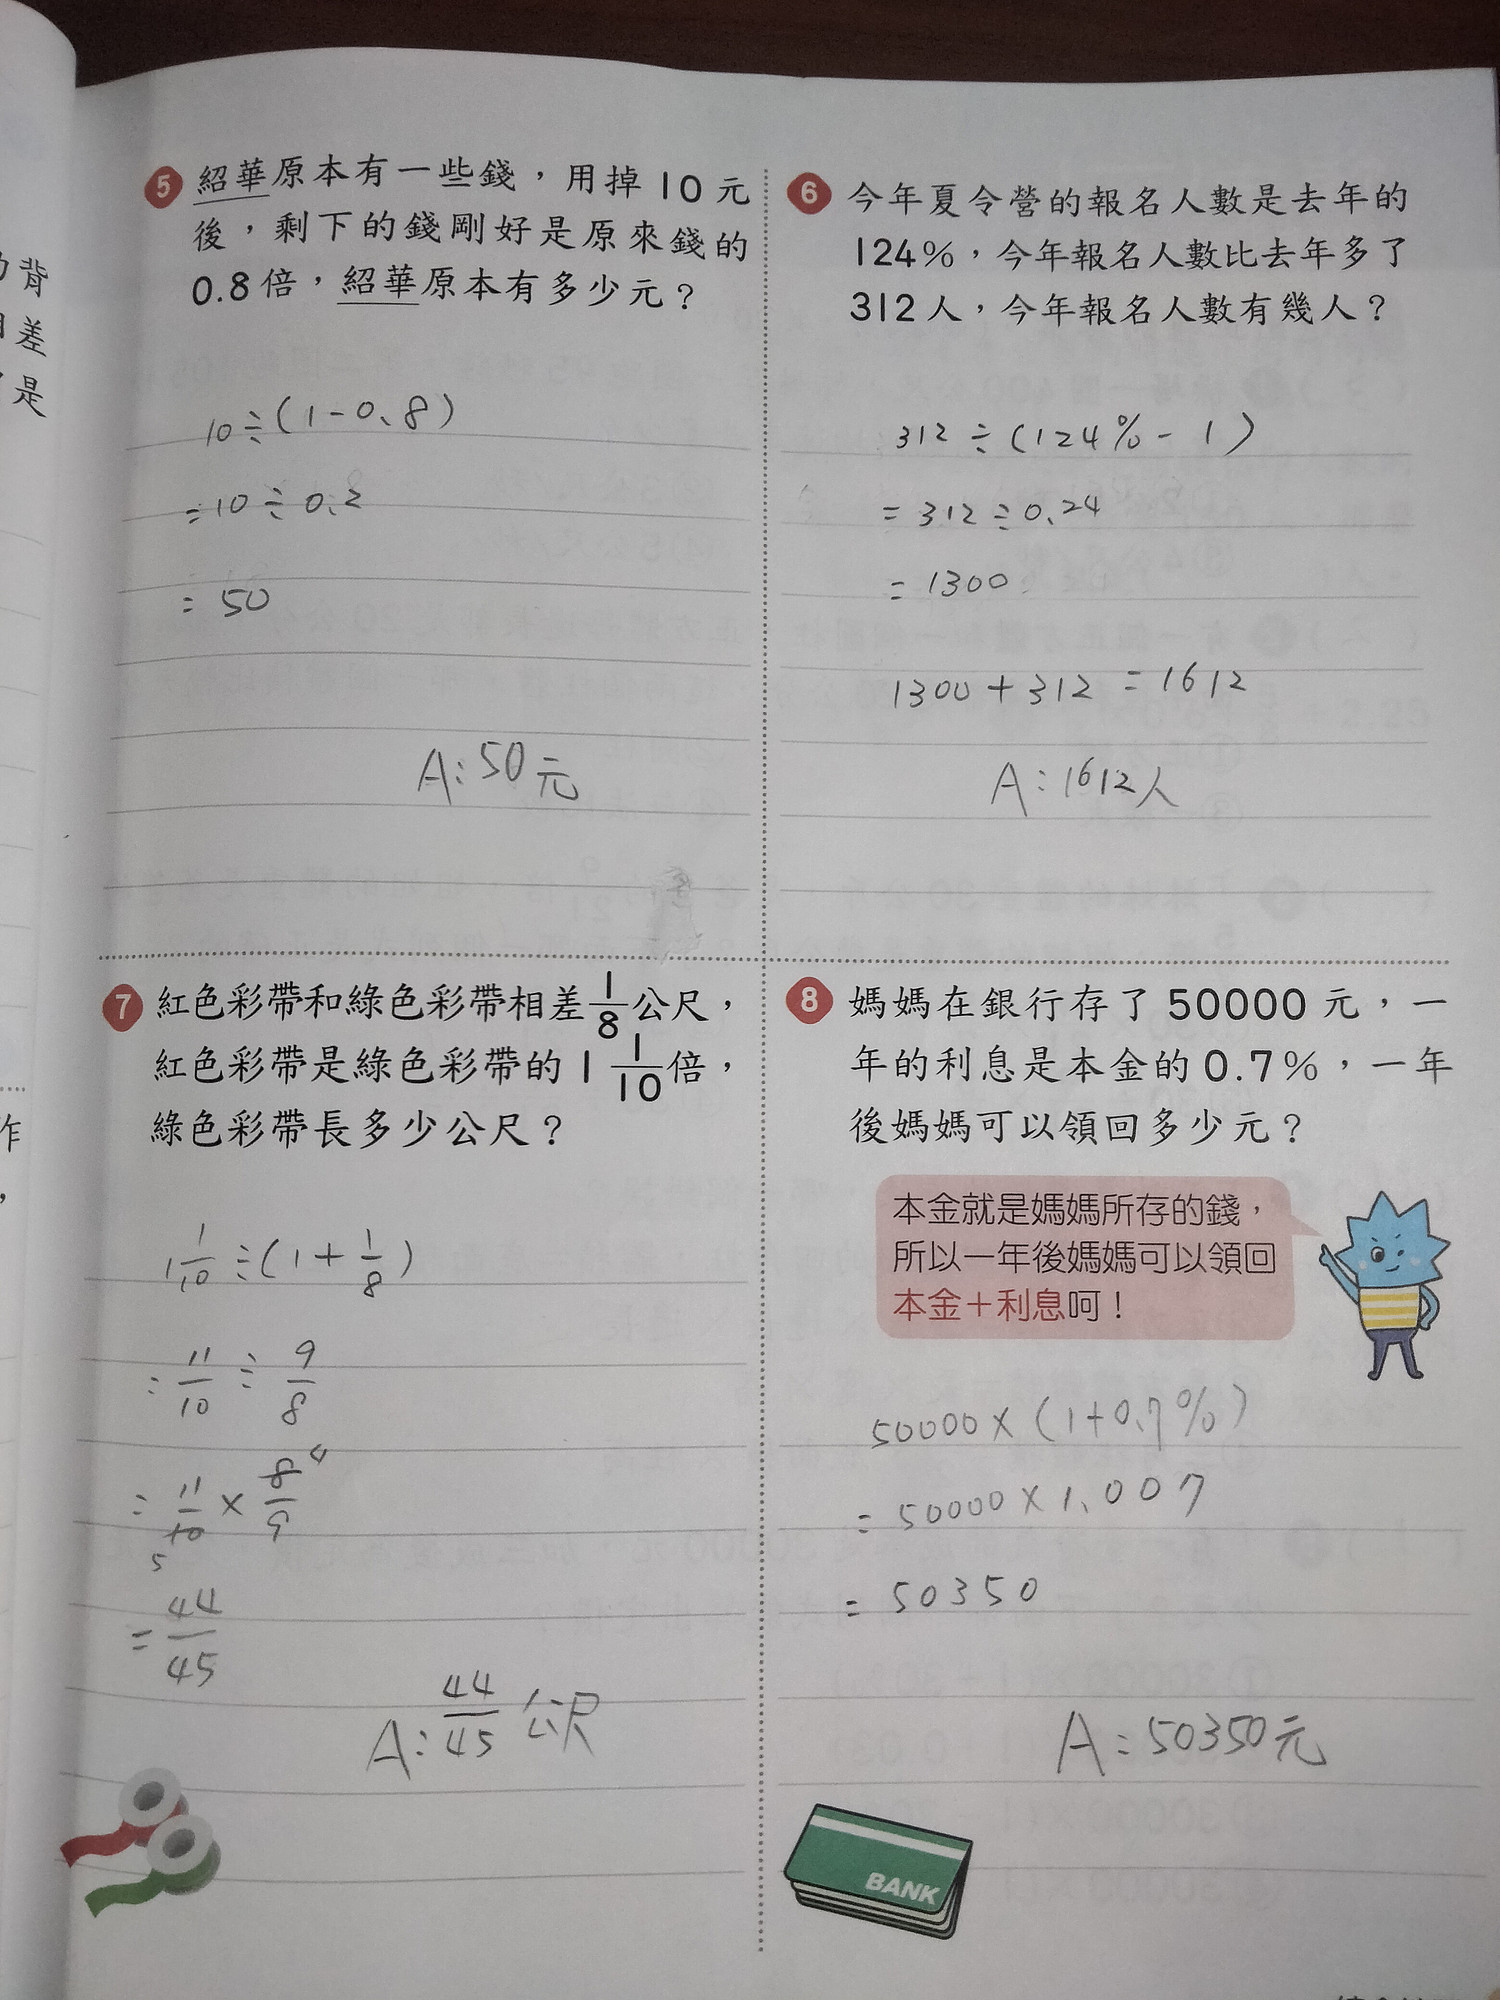 背
差
是
作
，
5 紹華原本有一些錢，用掉10元
後，剩下的錢剛好是原來錢的
0.8倍，紹華原本有多少元？
10÷(1-0.8)
=10÷0.2
=50
A:50元
6 今年夏令營的報名人數是去年的
124%，今年報名人數比去年多了
312人，今年報名人數有幾人？
312÷(124%-1)
=312÷0.24
=1300
1300+312=1612
A:1612人
7 紅色彩帶和綠色彩帶相差1/8公尺，
紅色彩帶是綠色彩帶的1 1/10倍，
綠色彩帶長多少公尺？
1 1/10÷(1+1/8)
=11/10÷9/8
=11/10×8/9
5 4
=44/45
A:44/45公尺
8 媽媽在銀行存了50000元，一
年的利息是本金的0.7%，一年
後媽媽可以領回多少元？
本金就是媽媽所存的錢，
所以一年後媽媽可以領回
本金＋利息呵！
50000×(1+0.7%)
=50000×1.007
=50350
A:50350元
BANK